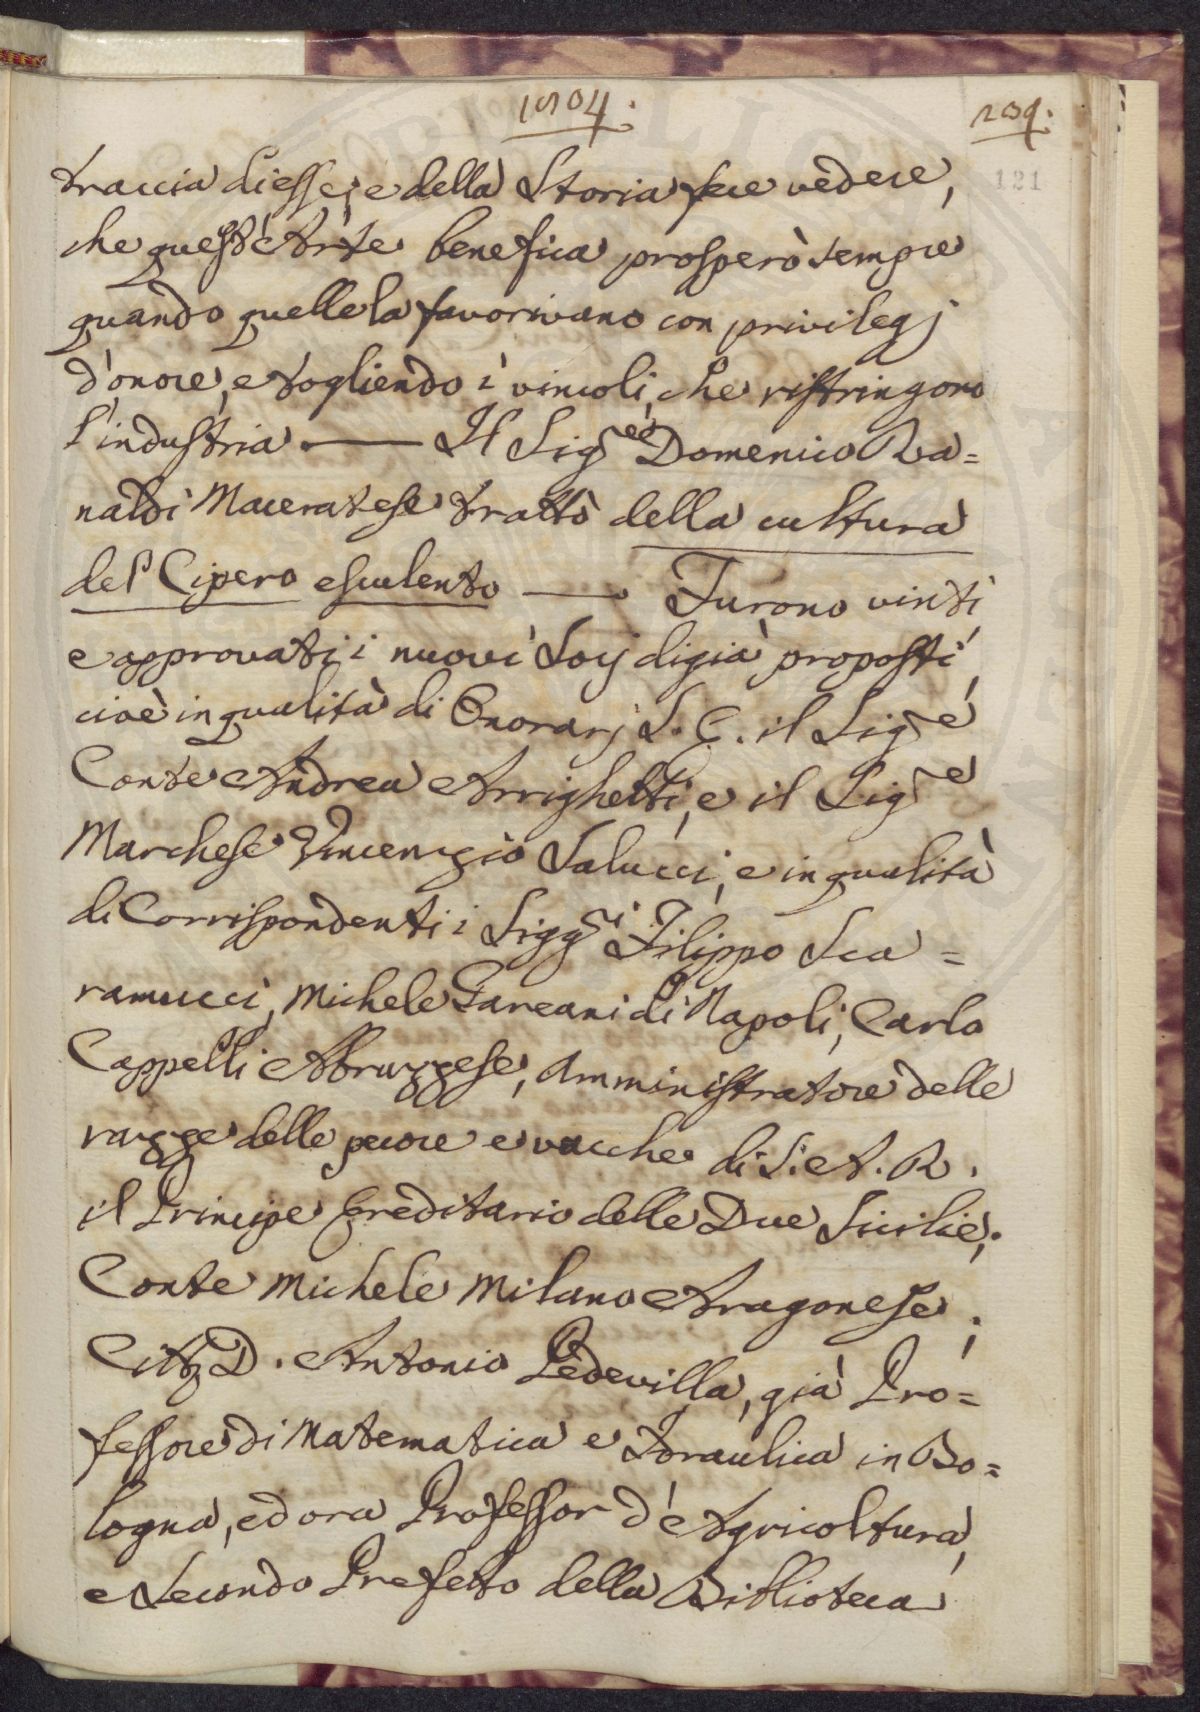 1804.
239.
121
traccia di esse, e della Storia fece vedere,
che quest'Arte benefica prosperò sempre
quando quelle la favorivano con privilegj
d'onore, e togliendo i vincoli, che ristringono
l'industria —— Il Sig.re Domenico Ra=
naldi Maceratese trattò della cultura
del Cipero esculento —— Furono vinti,
e approvati i nuovi Socj di già proposti,
cioè in qualità di Onorarj S. C. il Sig.re
Conte Andrea Arrighetti, e il Sig.re
Marchese Vincenzio Salucci, e in qualità
di Corrispondenti i Sigg.ri Filippo Sca=
ramucci, Michele Tarcani di Napoli, Carlo
Cappelli Abruzzese, Amministratore delle
razze delle pecore e vacche di S. A. R.
il Principe Ereditario delle Due Sicilie;
Conte Michele Milano Aragonese;
D. Antonio Pedevilla, già Pro=
fessore di Matematica e Idraulica in Bo=
logna, ed ora Professor d'Agricoltura,
e Secondo Prefetto della Biblioteca